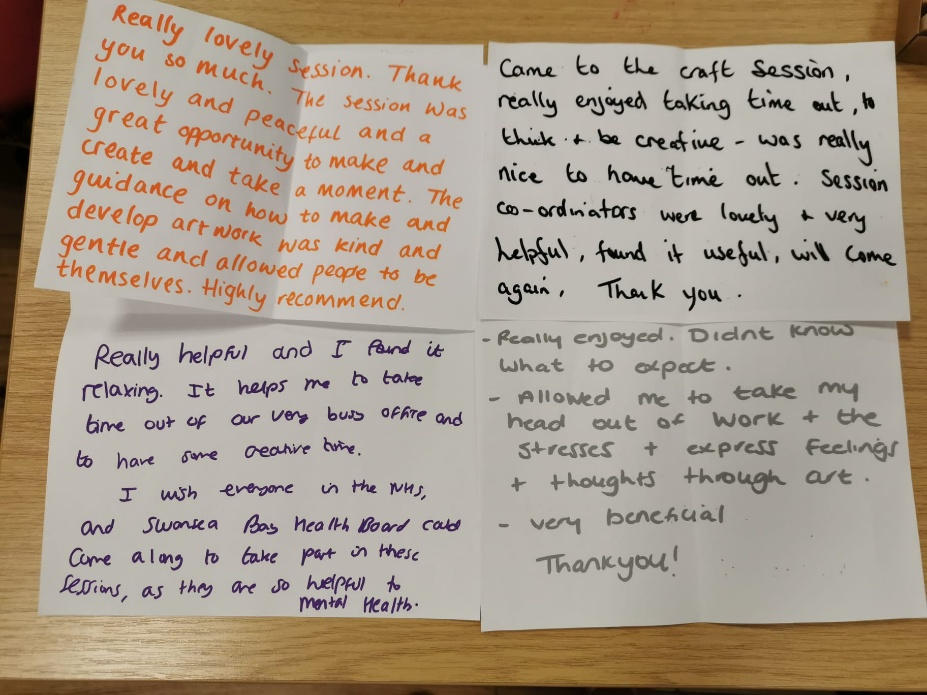 Really lovely session. Thank
you so much. The session was
lovely and peaceful and a
great opportunity to make and
create and take a moment. The
guidance on how to make and
develop artwork was kind and
gentle and allowed people to be
themselves. Highly recommend.
Came to the craft session,
really enjoyed taking time out, to
think + be creative - was really
nice to have time out. Session
co-ordinators were lovely + very
helpful, found it useful, will come
again, Thank you.
Really helpful and I found it
relaxing. It helps me to take
time out of our very busy office and
to have some creative time.
I wish everyone in the NHS,
and Swansea Bay Health Board could
come along to take part in these
sessions, as they are so helpful to
mental Health.
- Really enjoyed. Didnt know
what to expect.
- Allowed me to take my
head out of work + the
stresses + express feelings
+ thoughts through art.
- very beneficial
Thankyou!